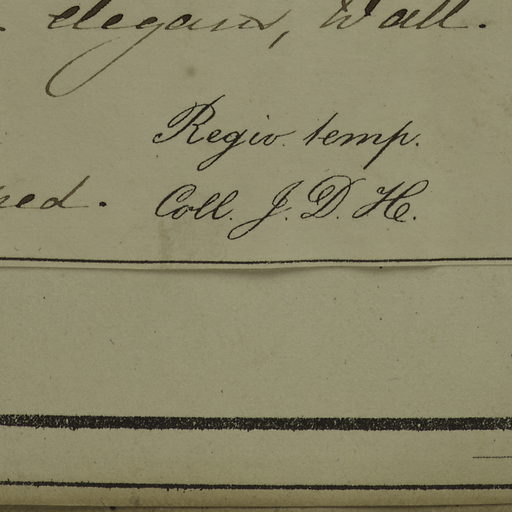 elegans, Wall.
Regio. temp.
Coll. J. D. H.